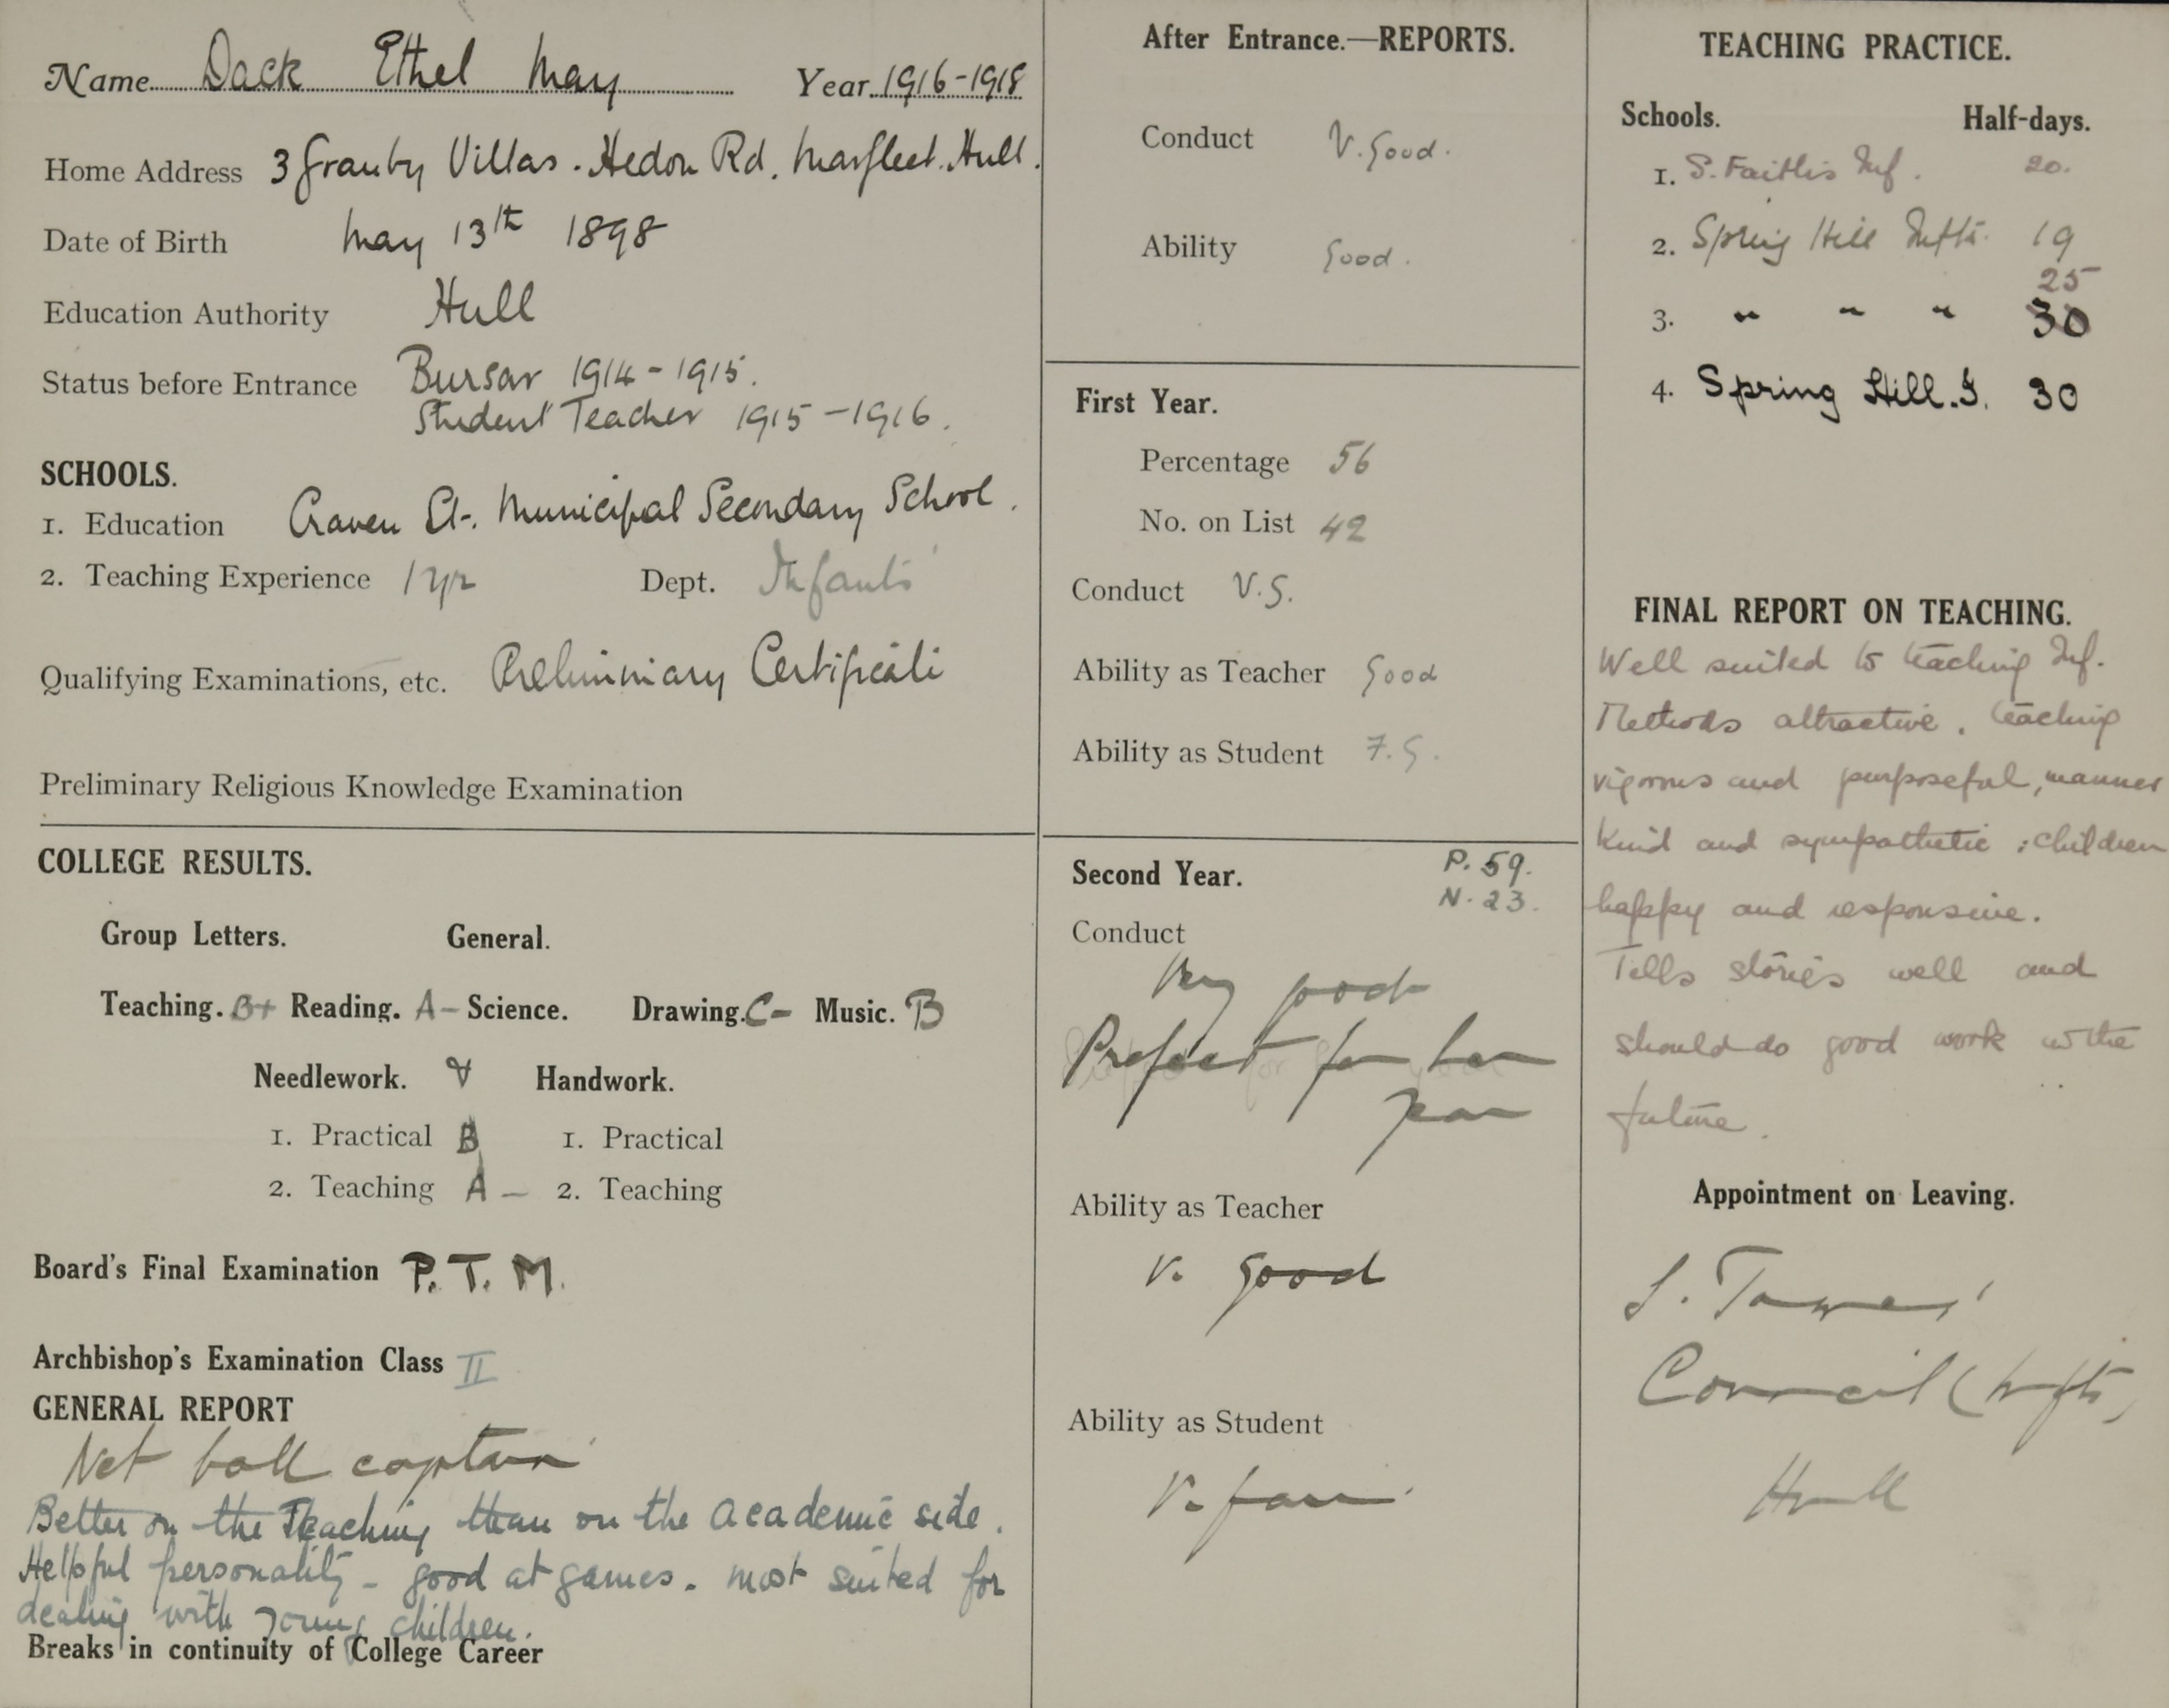 Name Dack Ethel May Year 1916-1918
Home Address 3 Granby Villas. Hedon Rd. Marfleet. Hull.
Date of Birth May 13th 1898
Education Authority Hull
Status before Entrance Bursar 1914-1915.
Student Teacher 1915-1916.
SCHOOLS.
1. Education Craven St. Municipal Secondary School.
2. Teaching Experience 1 yr Dept. Infants
Qualifying Examinations, etc. Preliminary Certificate
Preliminary Religious Knowledge Examination
COLLEGE RESULTS.
Group Letters. General.
Teaching. B+ Reading. A- Science. Drawing. C- Music. B
Needlework. Handwork.
1. Practical B 1. Practical
2. Teaching A- 2. Teaching
Board's Final Examination P.T.M.
Archbishop's Examination Class II
GENERAL REPORT
Net ball captain
Better on the Teaching than on the academic side.
Helpful personality - good at games. most suited for
dealing with young children.
Breaks in continuity of College Career
After Entrance.—REPORTS.
Conduct V. Good.
Ability Good.
First Year.
Percentage 56
No. on List 42
Conduct V.G.
Ability as Teacher Good
Ability as Student F.G.
Second Year. P. 59.
N. 23.
Conduct
Very good
Prefect for her
year
Ability as Teacher
V. Good
Ability as Student
V. fair.
TEACHING PRACTICE.
Schools. Half-days.
1. S. Faith's Inf. 20.
2. Spring Hill Infts. 19
25
3. " " " 30
4. Spring Hill. I. 30
FINAL REPORT ON TEACHING.
Well suited to teaching Inf.
Methods attractive. teaching
vigorous and purposeful, manner
kind and sympathetic; children
happy and responsive.
Tells stories well and
should do good work in the
future.
Appointment on Leaving.
Council (Infts)
Hull